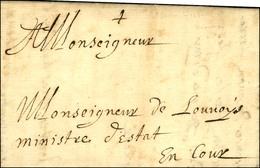 A Monseigneur
Monseigneur de Louvoys
ministre d'Estat
En Cour